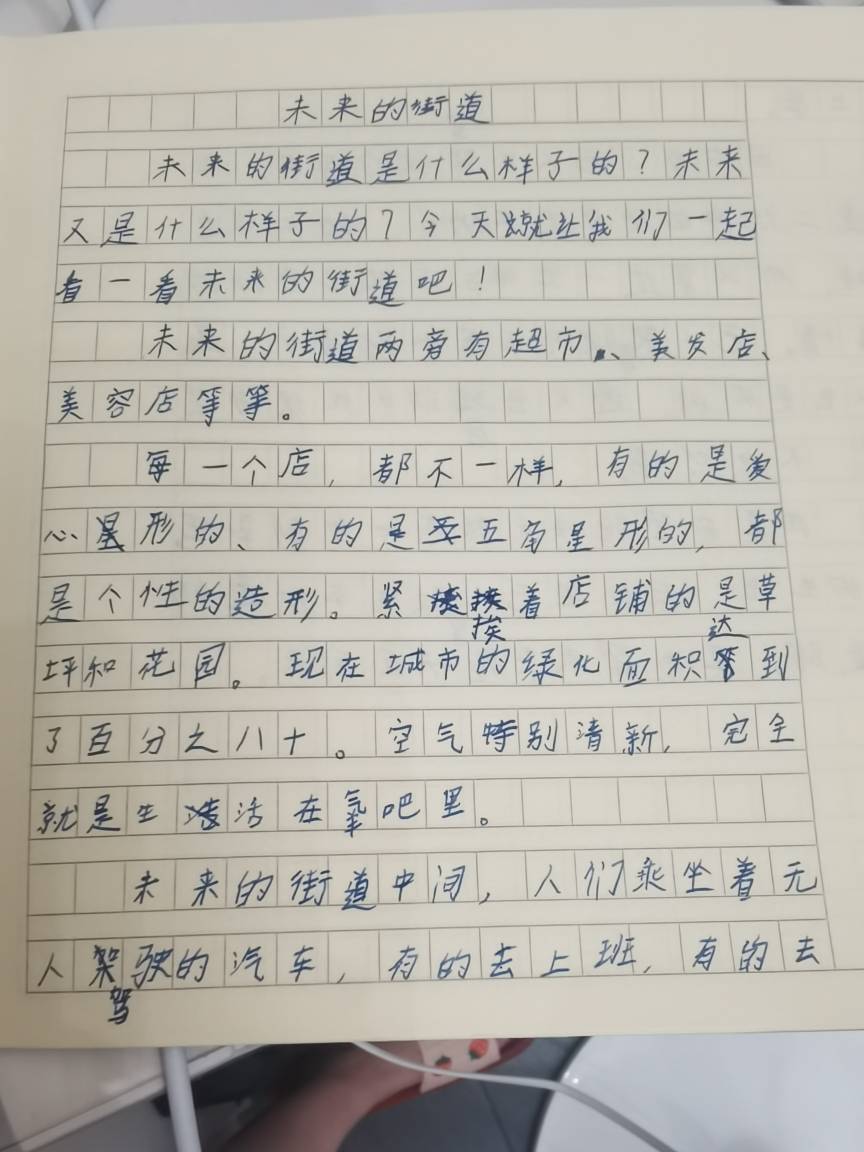 未来的街道
未来的街道是什么样子的？未来
又是什么样子的？今天就让我们一起
看一看未来的街道吧！
未来的街道两旁有超市、美发店、
美容店等等。
每一个店，都不一样，有的是爱
心形的、有的是五角星形的，都
是个性的造形。紧挨着店铺的是草
坪和花园。现在城市的绿化面积达到
了百分之八十。空气特别清新，完全
就是生活在氧吧里。
未来的街道中间，人们乘坐着无
人驾驶的汽车，有的去上班，有的去